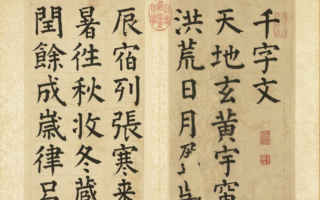 千字文
天地玄黃宇
洪荒日月
辰宿列張寒来
暑往秋收冬藏
閏餘成歲律呂